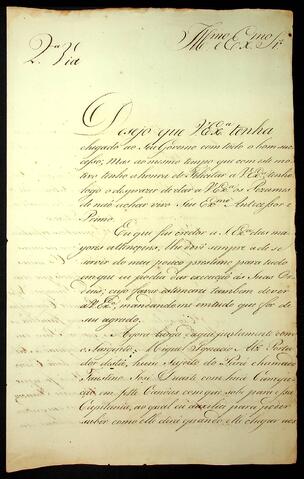 2.ª Via
Illmo e Exmo Sr.
Desejo que V.Ex.ª tenha
chegado ao Seu Governo com todo o bom suc
cesso; mas ao mesmo tempo que com este mo
tivo tenho a honra de felicitar a V.Ex.ª tenho
logo o desprazer de dar a V.Ex.ª os Pezames
de não achar vivo Seu Ex.mo Antecessor e
Primo.
Eu que fui credor a S.Ex.ª das ma
yores attençoens, lhe devi sempre a de se
servir do meu pouco prestimo para tudo
em que eu podia dar execução ás Suas Or
dens; cuja farei
a V.Ex.ª, mandando-me em tudo que for de
seu agrado.
Agora chega aqui juntamente com
o Sargento Miguel Ignacio
dor desta, hum Sujeito do Pará chamado
Faustino José Duarte com hua Carrega
ção em sette Canoas com que sobe para essa
Capitania, ao qual eu auxilio para poder
subir como elle dirá quando lhe chegar aos